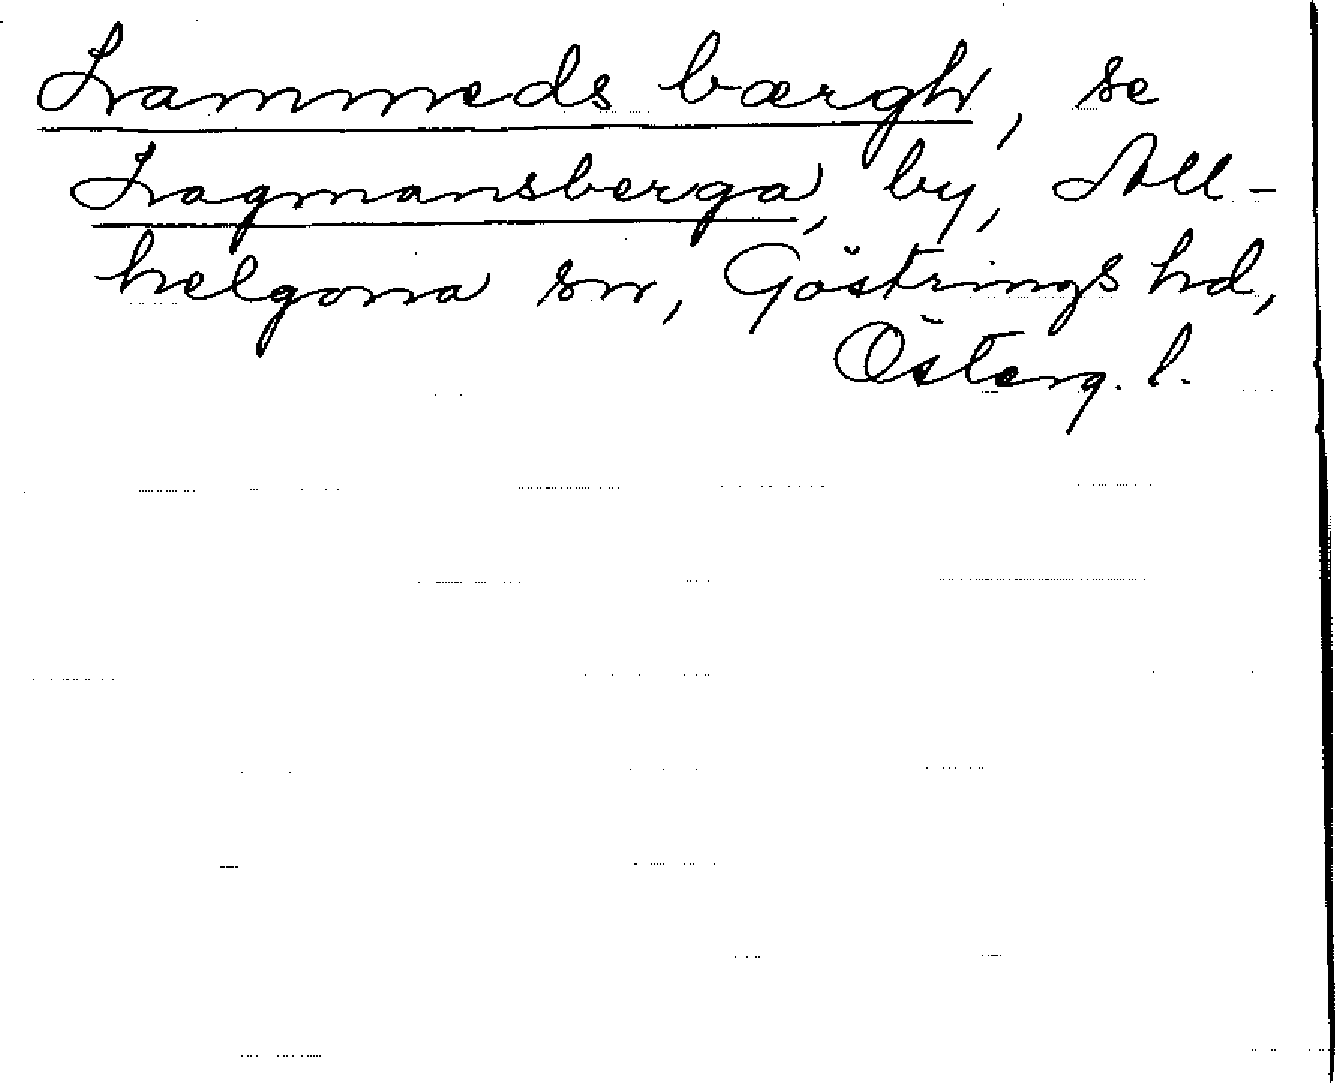 Lammeds bærgh, se
Lagmansberga, by, All-
helgona sn, Göstrings hd,
Österg. l.